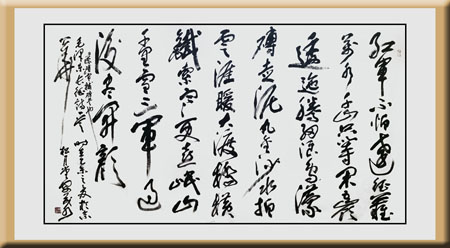 紅軍不怕遠征難
萬水千山只等閑五嶺
逶迤騰細浪烏蒙
礴走泥丸金沙水拍
雲崖暖大渡橋橫
鐵索寒更喜岷山
千里雪三軍過
後盡開顏
毛澤東長征詩